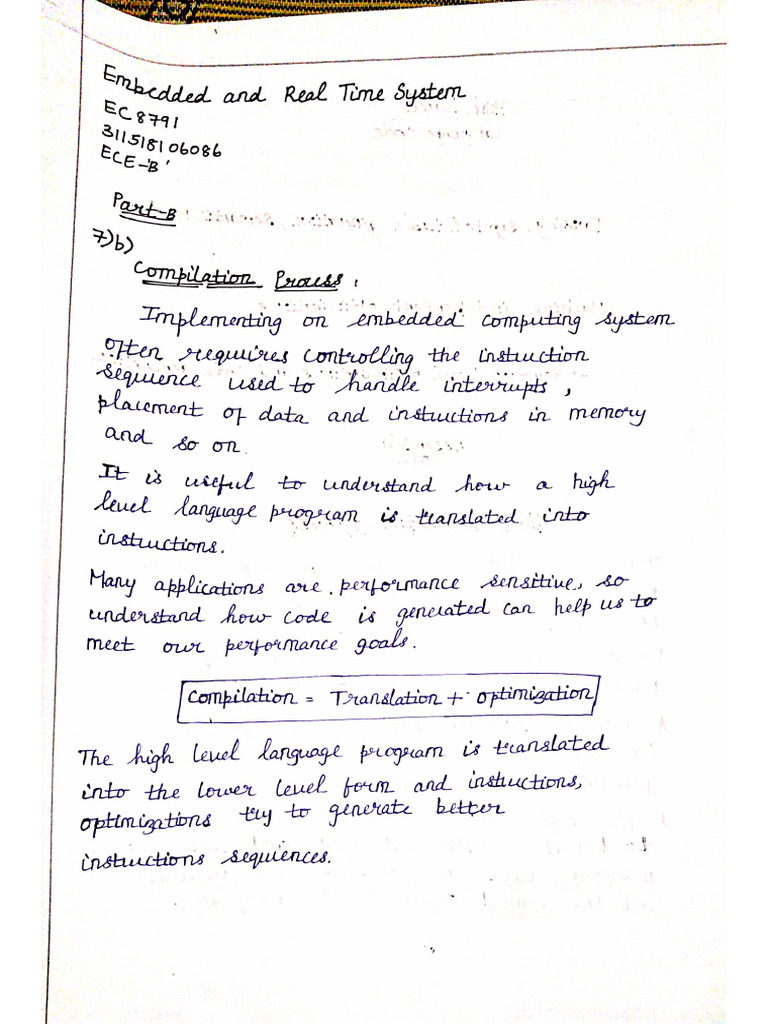 Embedded and Real Time System
EC8791
311518106086
ECE-'B'
Part-B
7)b)
Compilation Process:
Implementing on embedded computing system
often requires controlling the instruction
sequence used to handle interrupts,
placement of data and instructions in memory
and so on.
It is useful to understand how a high
level language program is translated into
instructions.
Many applications are performance sensitive, so
understand how code is generated can help us to
meet our performance goals.
Compilation = Translation + Optimization
The high level language program is translated
into the lower level form and instructions,
optimizations try to generate better
instructions sequences.